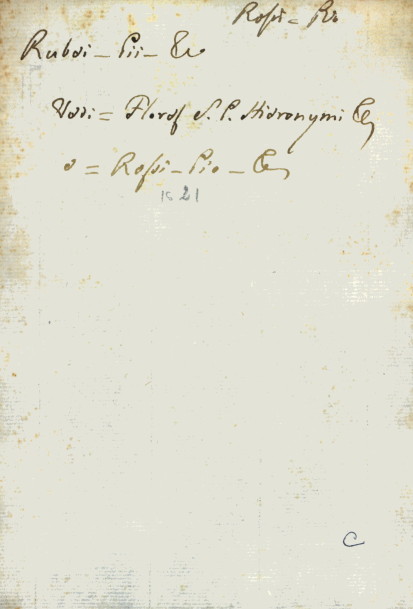 Rossi = Pio
Rubei - Pii - &c
Vedi = Floref S. P. Hieronymi &c
e = Rossi - Pio - &c
1521
C